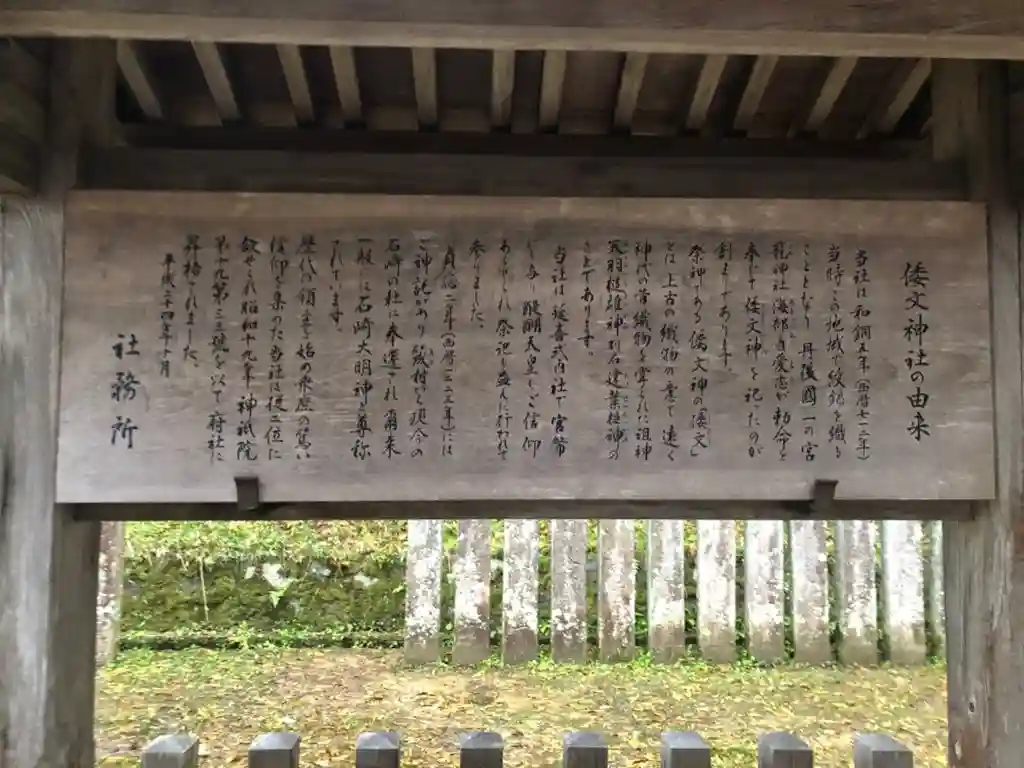 倭文神社の由来
当社は和銅五年(西暦七一二年)
当時この地域で綾錦を織る
こととなり丹後國一の宮
籠神社海部直愛志が勅命を
奉じて倭文神を祀ったのが
創まりであります。
祭神である倭文神の「倭文」
とは上古の織物の意で遠く
神代の昔織物を掌られた祖神
天羽槌雄神別名建葉槌神の
ことであります。
当社は延喜式内社で官幣
に与り醍醐天皇もご信仰
あらせられ祭祀も盛んに行われて
参りました。
貞応二年(西暦一二二三年)には
ご神託があり幾棟も現今の
石崎の杜に奉遷され爾来
一般には石崎大明神と尊称
されています。
歴代の領主を始め衆庶の篤い
信仰を集めた当社は従二位に
叙せられ昭和十九年神祇院
第十九第三三號を以て府社に
昇格されました。
平成二十四年十月
社務所